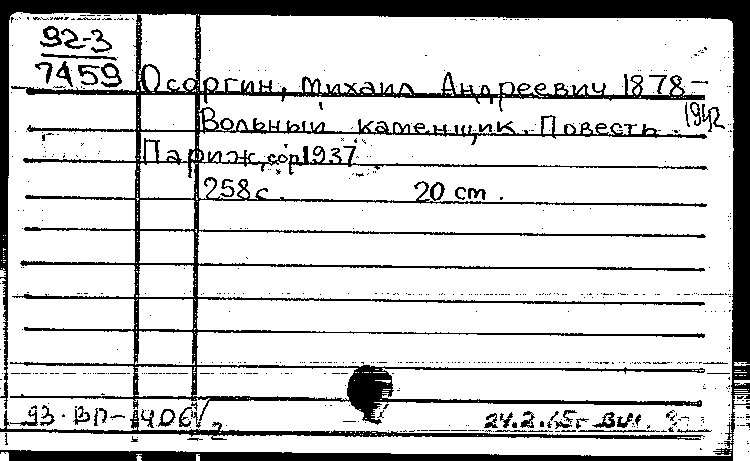 92-3
7459
Осоргин, Михаил Андреевич, 1878-
1942
Вольный каменщик. Повесть.
Париж, cop. 1937
258 с. 20 cm.
93-ВП-406/2
24.2.65г.